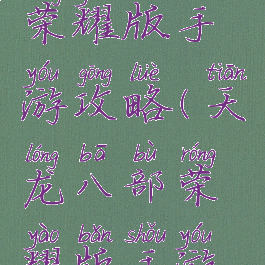 荣耀版手
yóu gōng lüè tiān
游攻略(天
lóng bā bù róng
龙八部荣
yào bǎn shǒu yóu
耀版手游